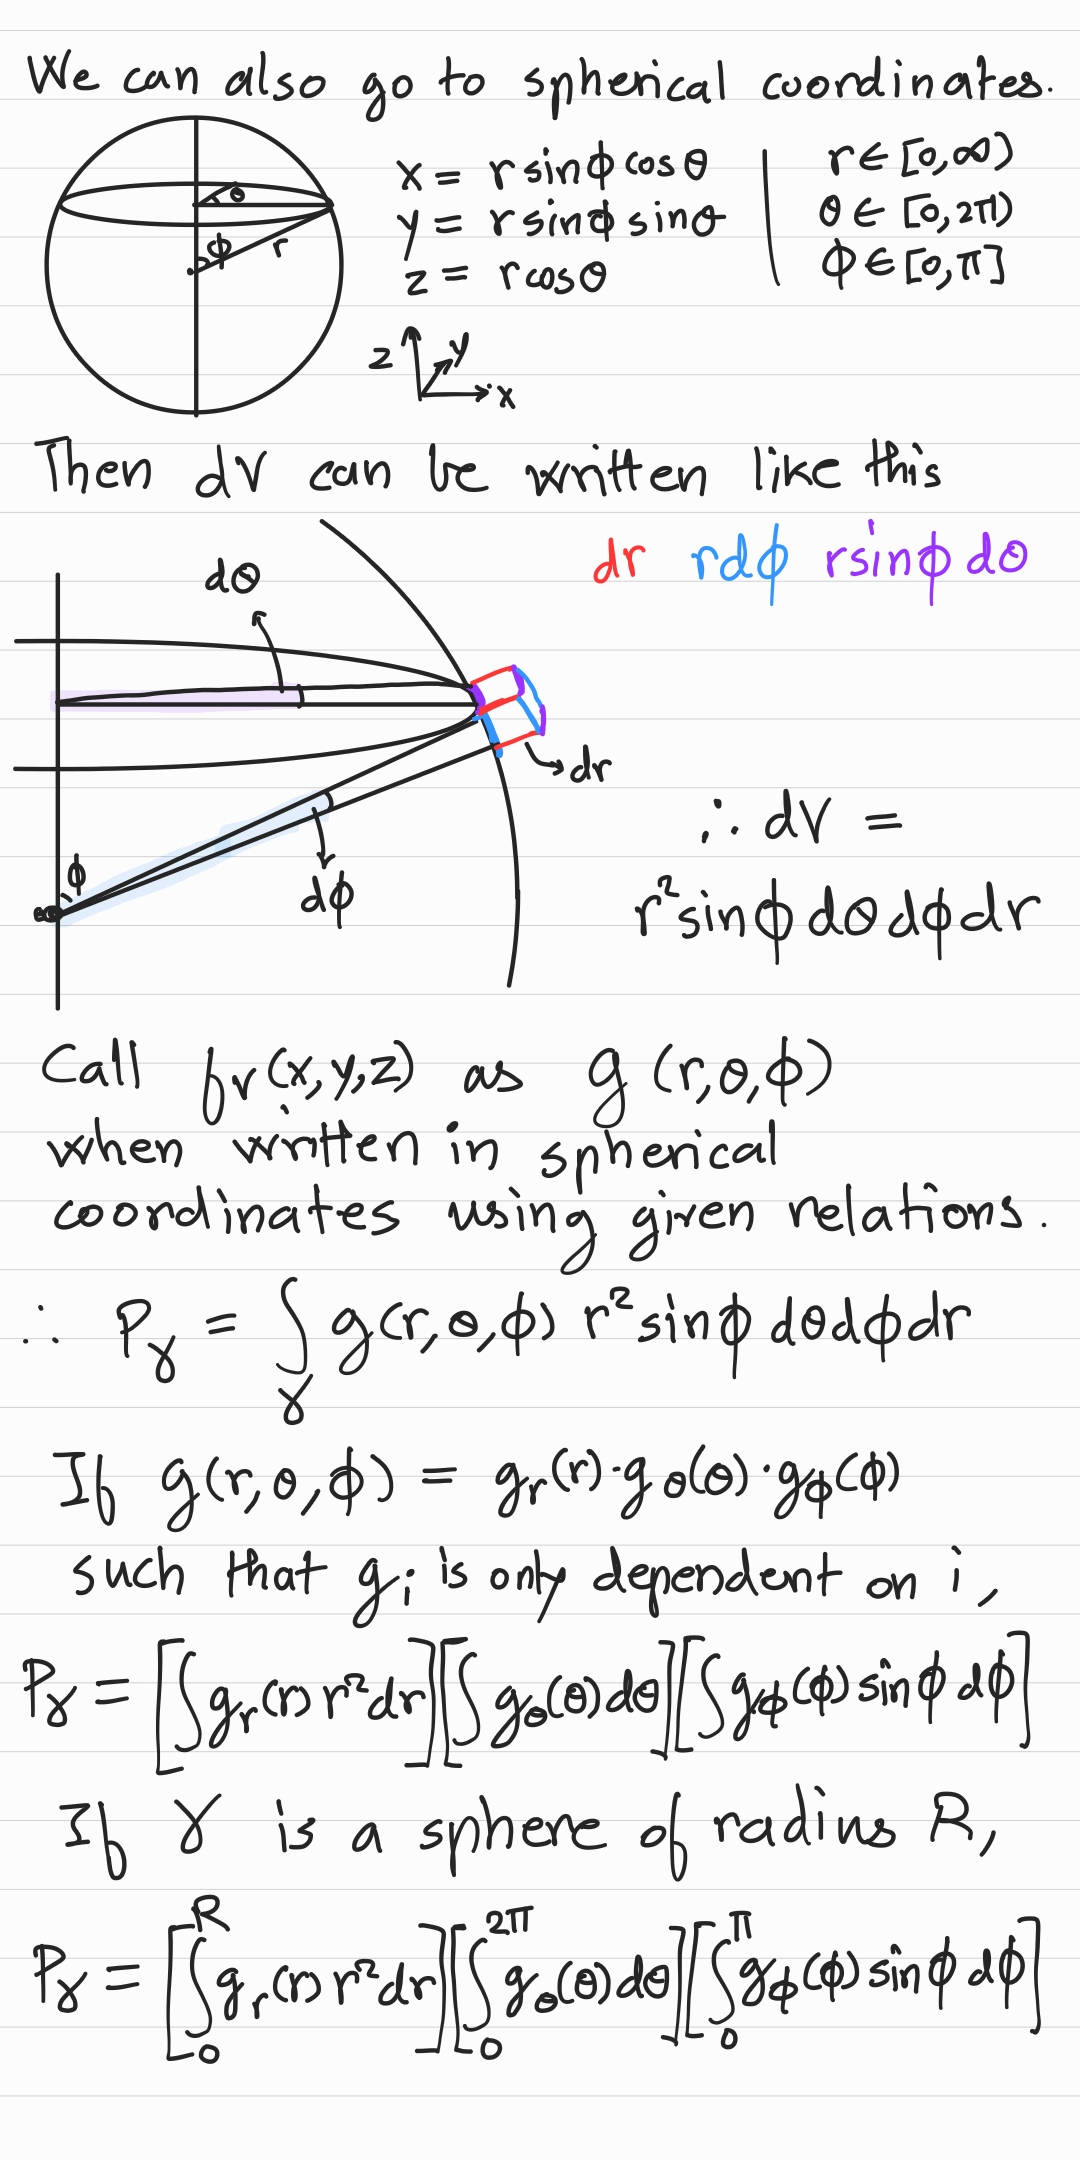 We can also go to spherical coordinates.
θ
ϕ
r
x = r sinϕ cosθ
y = r sinϕ sinθ
z = r cosθ
r ∈ [0,∞)
θ ∈ [0,2π)
ϕ ∈ [0,π]
z
y
x
Then dV can be written like this
dr rdϕ rsinϕ dθ
dθ
dr
ϕ
dϕ
∴ dV =
r² sinϕ dθ dϕ dr
Call f_V(x,y,z) as g(r,θ,ϕ)
when written in spherical
coordinates using given relations.
∴ P_γ = ∫_γ g(r,θ,ϕ) r² sinϕ dθ dϕ dr
If g(r,θ,ϕ) = g_r(r)·g_θ(θ)·g_ϕ(ϕ)
such that g_i is only dependent on i,
P_γ = [∫ g_r(r) r² dr][∫ g_θ(θ) dθ][∫ g_ϕ(ϕ) sinϕ dϕ]
If γ is a sphere of radius R,
P_γ = [∫_0^R g_r(r) r² dr][∫_0^2π g_θ(θ) dθ][∫_0^π g_ϕ(ϕ) sinϕ dϕ]